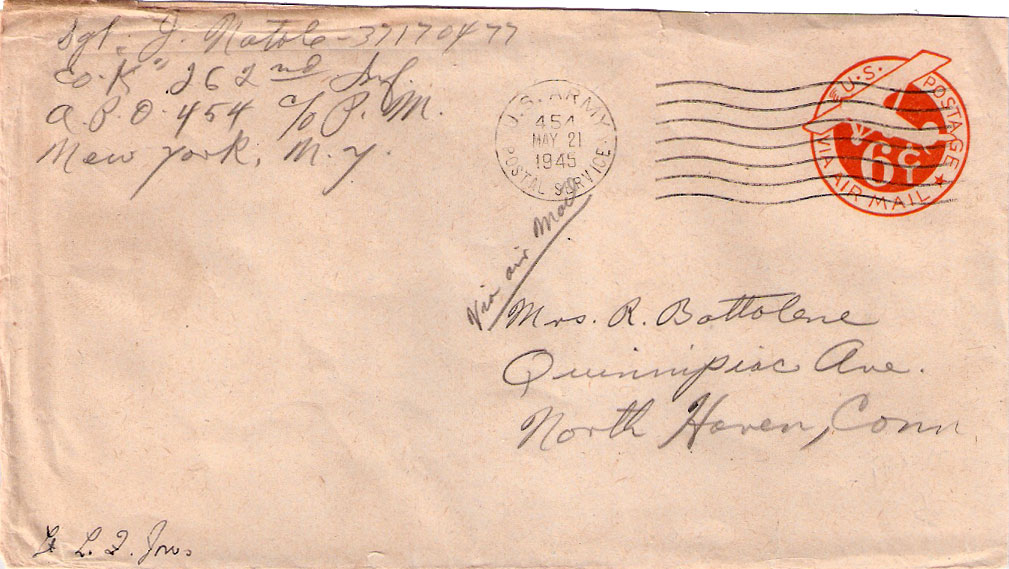 Sgt. J. Natole - 37170477
Co. K" 262nd Inf.
A.P.O. 454 c/o P.M.
New York, N.Y.
U.S. ARMY
454
MAY 21
1945
POSTAL SERVICE
U.S. POSTAGE
6¢
VIA AIR MAIL
Via air Mail
Mrs. R. Battolene
Quinnipiac Ave.
North Haven, Conn
Lt L. F.